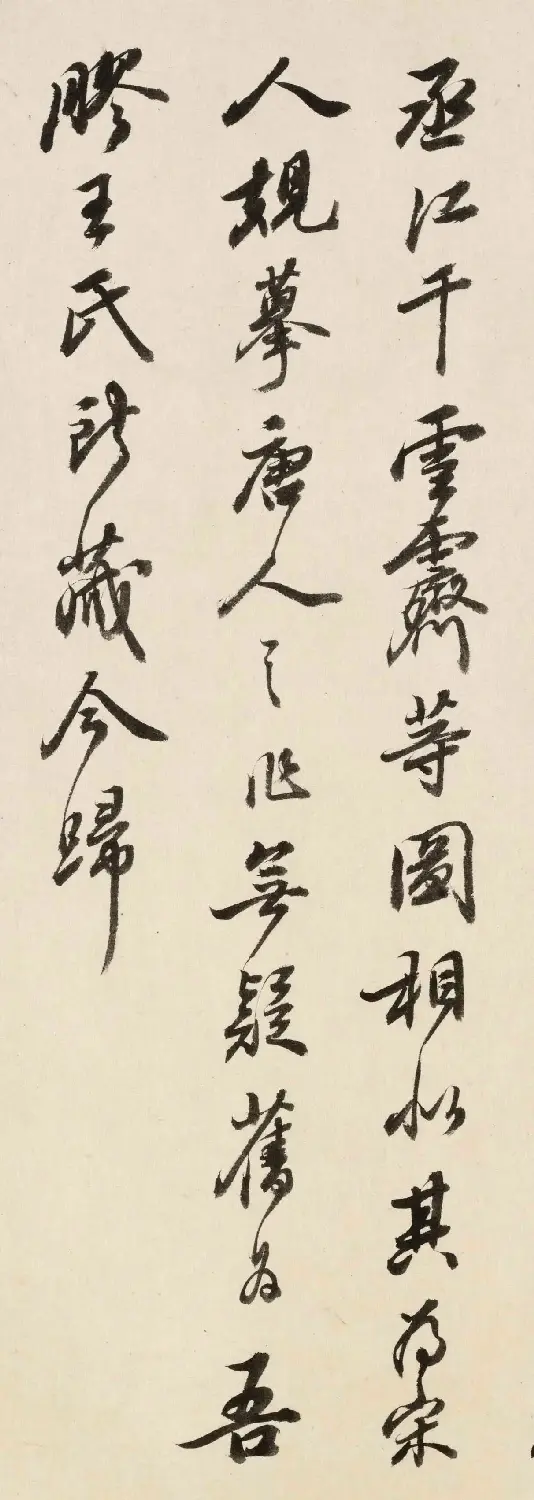 丞江干雪霽等圖相似其為宋
人規摹唐人之作無疑舊為吾
膠王氏所藏今歸